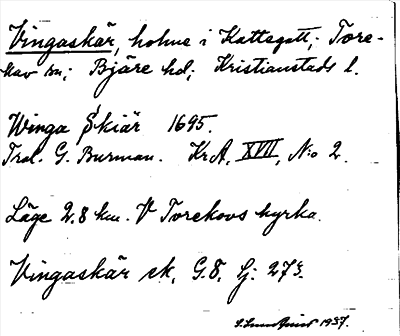 Vingaskär, holme i Kattegatt, Tore-
kov sn; Bjäre hd; Kristianstads l.
Winga Skiär 1695.
Tral. G. Burman. KrA, XVII, No 2.
Läge 2.8 km. V Torekovs kyrka.
Vingaskär ek. G.8, Lj: 273.
1937.